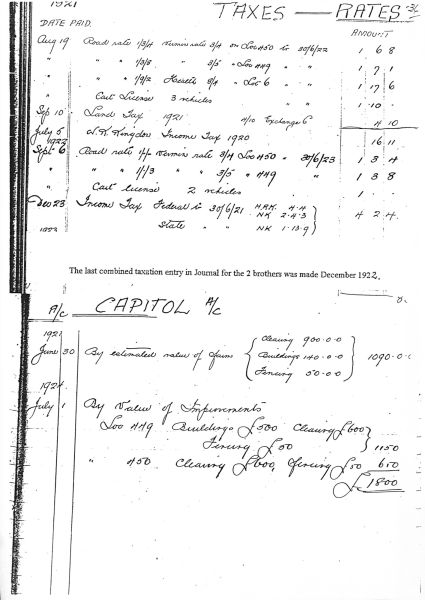 1921
TAXES — RATES
DATE PAID.
AMOUNT
Aug 19 Road rate 1/3/4 Vermin rate 3/4 on Loc 450 to 30/6/22 1 6 8
" " " 1/3/8 " 3/5 " Loc 449 " " 1 7 1
" " " 1/9/2 Health 8/4 " Lot 6 " " 1 17 6
" Cart License 3 vehicles " " 1 10 -
Sep 10 Land Tax 1921 4/10 Exchange 6 4 10
July 5 N.K. Kingdon Income Tax 1920 16 11
1922
Sept 6 Road rate 1/- Vermin rate 3/4 Loc 450 " 30/6/23 1 3 4
" " " 1/1/3 " 3/5 " 449 " 1 3 8
" Cart license 2 vehicles 1 . -
Dec 23 Income Tax Federal to 30/6/21 H.R.K. 4.4 NK 2.4.3 4 2 4
State " " NK 1.13.9
The last combined taxation entry in Journal for the 2 brothers was made December 1922.
A/c CAPITOL A/c
1921
June 30 By estimated value of farm Clearing 900-0-0 Buildings 140-0-0 Fencing 50-0-0 1090-0-0
1924
July 1 By Value of Improvements
Loc 449 Buildings £500 Clearing £600
Fencing £50 1150
" 450 Clearing £600, fencing £50 650
£1800